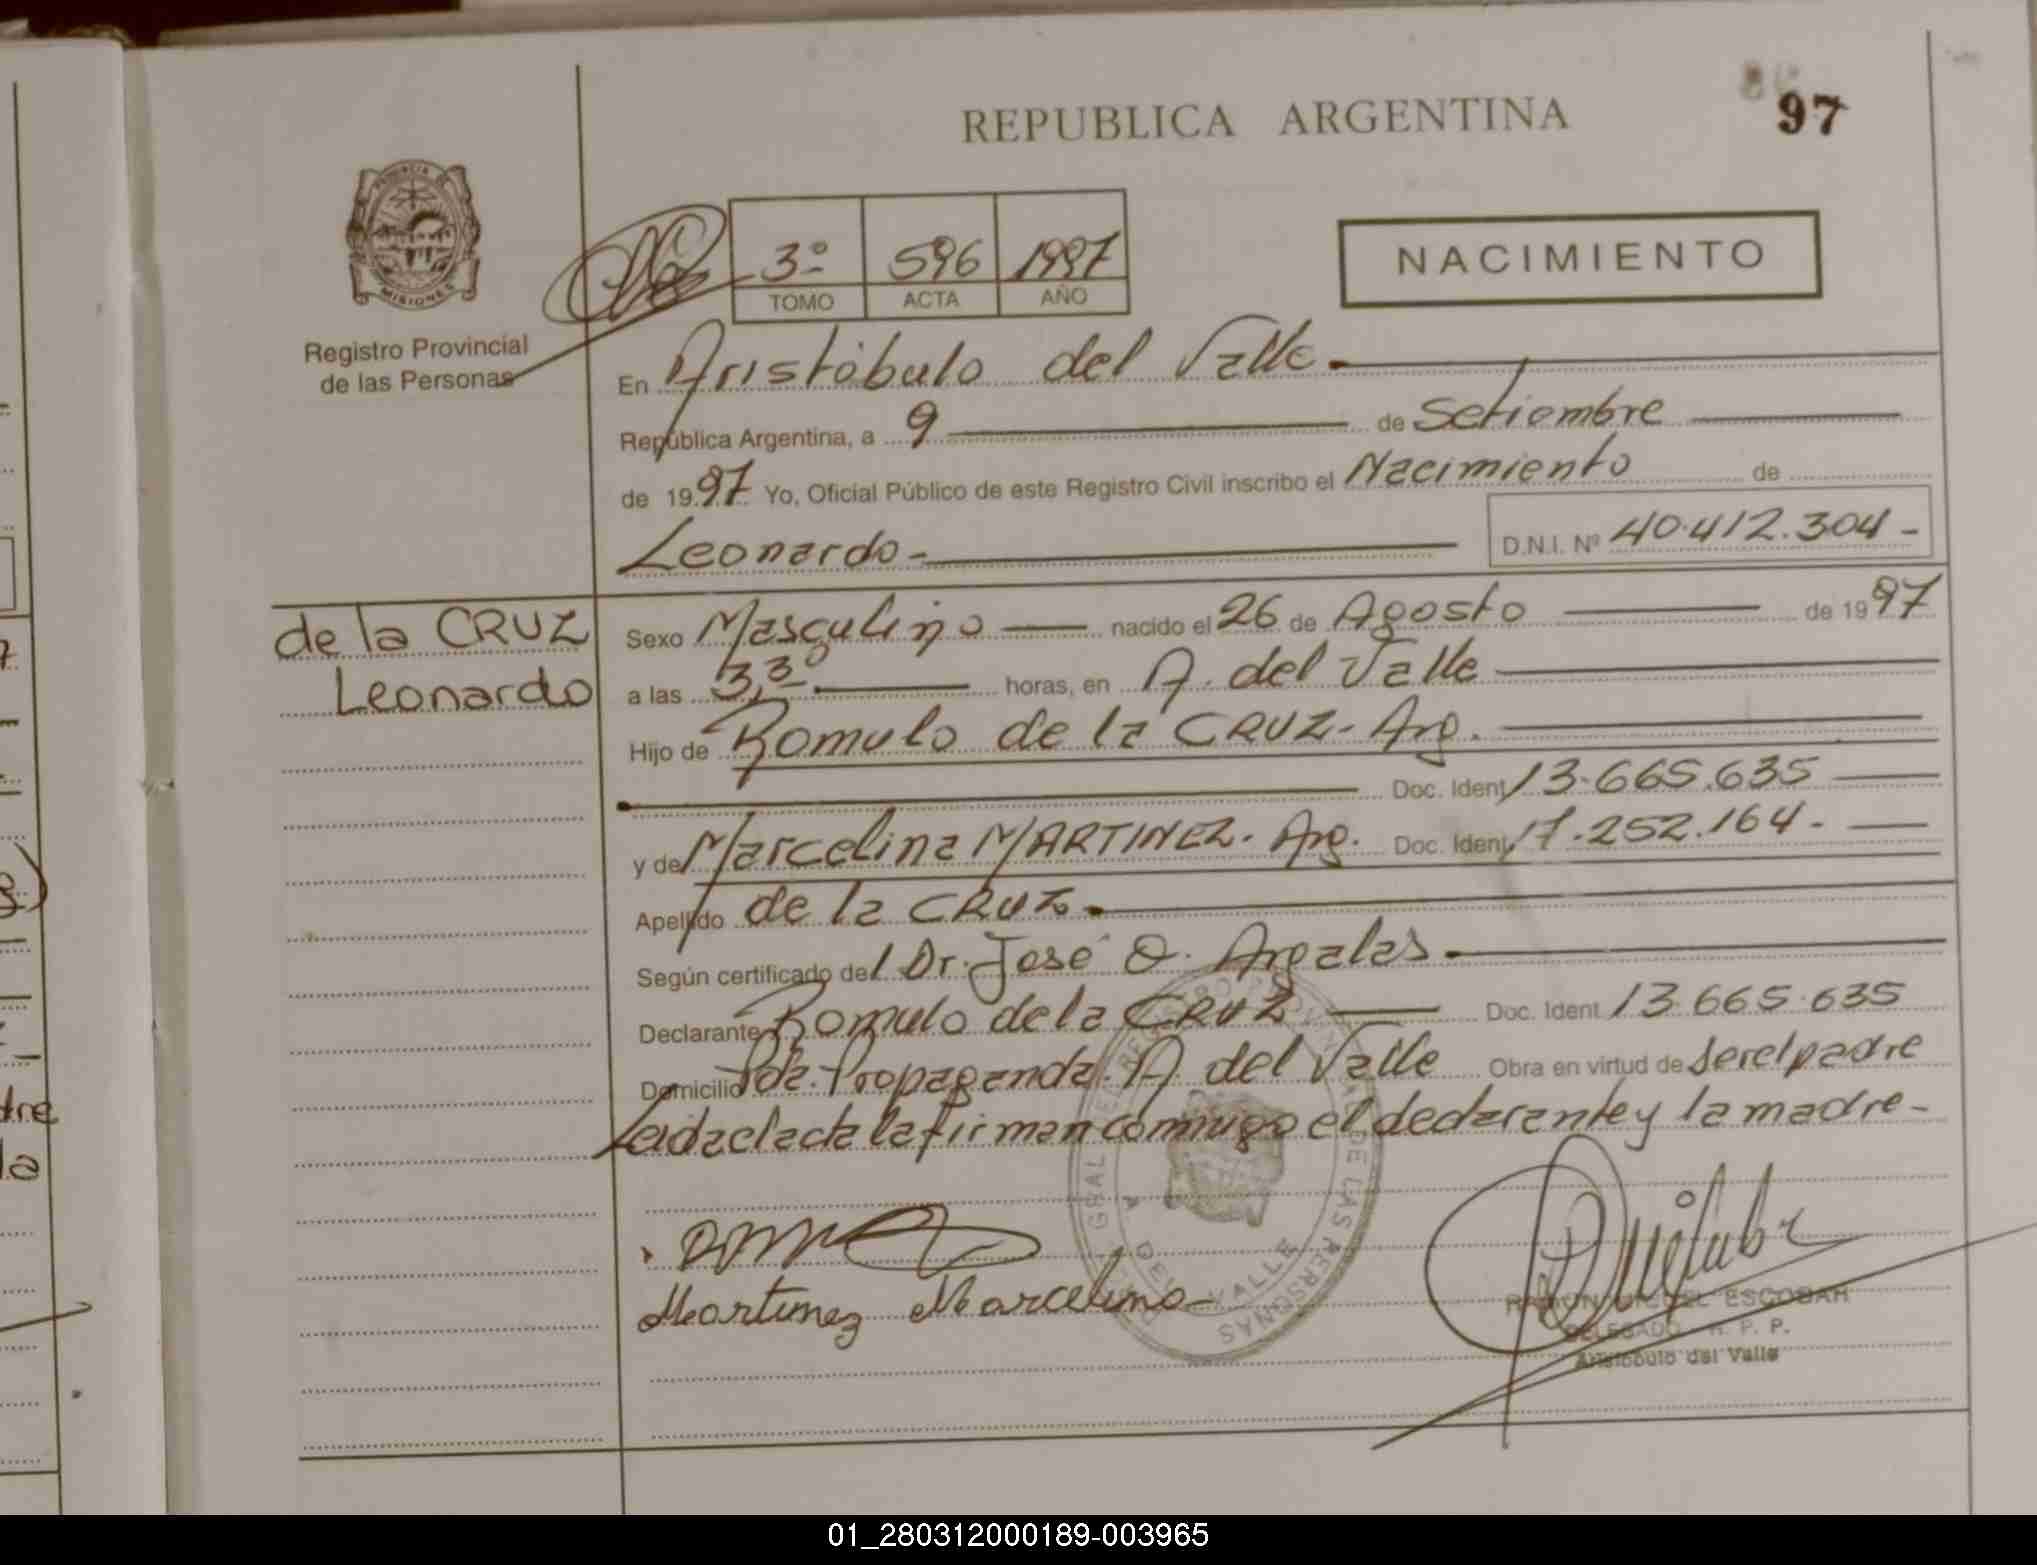 REPUBLICA ARGENTINA
97
PROVINCIA DE
MISIONES
Registro Provincial
de las Personas
3º 596 1997
TOMO ACTA AÑO
NACIMIENTO
En Aristóbulo del Valle
República Argentina, a 9 de Setiembre
de 1997 Yo, Oficial Público de este Registro Civil inscribo el Nacimiento de
Leonardo - D.N.I. Nº 40.412.304 -
de la CRUZ
Leonardo
Sexo Masculino nacido el 26 de Agosto de 1997
a las 3,30 horas, en A. del Valle
Hijo de Romulo de la CRUZ - Arg.
Doc. Ident. 13.665.635
y de Marcelina MARTINEZ - Arg. Doc. Ident. 17.252.164 -
Apellido de la CRUZ
Según certificado del Dr. José O.
Declarante Romulo de la CRUZ Doc. Ident. 13.665.635
Domicilio Pda. Propaganda. A del Valle Obra en virtud de ser el padre
Leida el acta la firman conmigo el declarante y la madre -
Martinez Marcelina
RAMON MIGUEL ESCOBAR
DELEGADO R. P. P.
Aristóbulo del Valle
A DEL VALLE
DE LAS PERSONAS
01_280312000189-003965